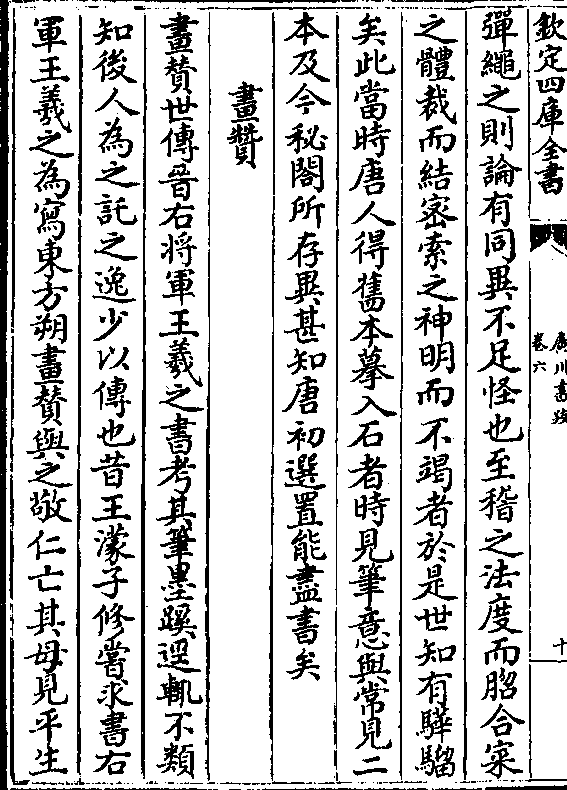 欽定四庫全書
廣川書跋
卷六
十
彈繩之則論有同異不足怪也至稽之法度而脗合寀
之體裁而結密索之神明而不竭者於是世知有驊騮
矣此當時唐人得舊本摹入石者時見筆意與常見二
本及今秘閣所存異甚知唐初選置能盡書矣
畫贊
畫贊世傳晉右将軍王羲之書考其筆墨蹊逕輒不類
知後人為之託之逸少以傳也昔王濛子修嘗求書右
軍王羲之為寫東方朔畫贊與之敬仁亡其母見平生